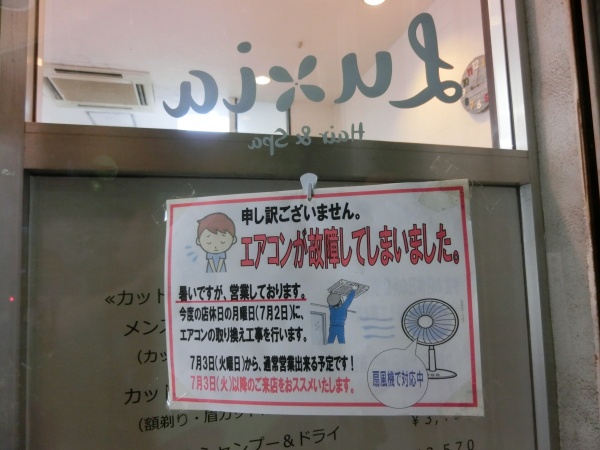 Luxia
Hair & Spa
申し訳ございません。
エアコンが故障してしまいました。
暑いですが、営業しております。
今度の店休日の月曜日(7月2日)に、
エアコンの取り換え工事を行います。
7月3日(火曜日)から、通常営業出来る予定です!
7月3日(火)以降のご来店をおススメいたします。
扇風機で対応中
≪カット
メンズ
(カッ
カット
(額剃り・眉カット
シャンプー&ドライ